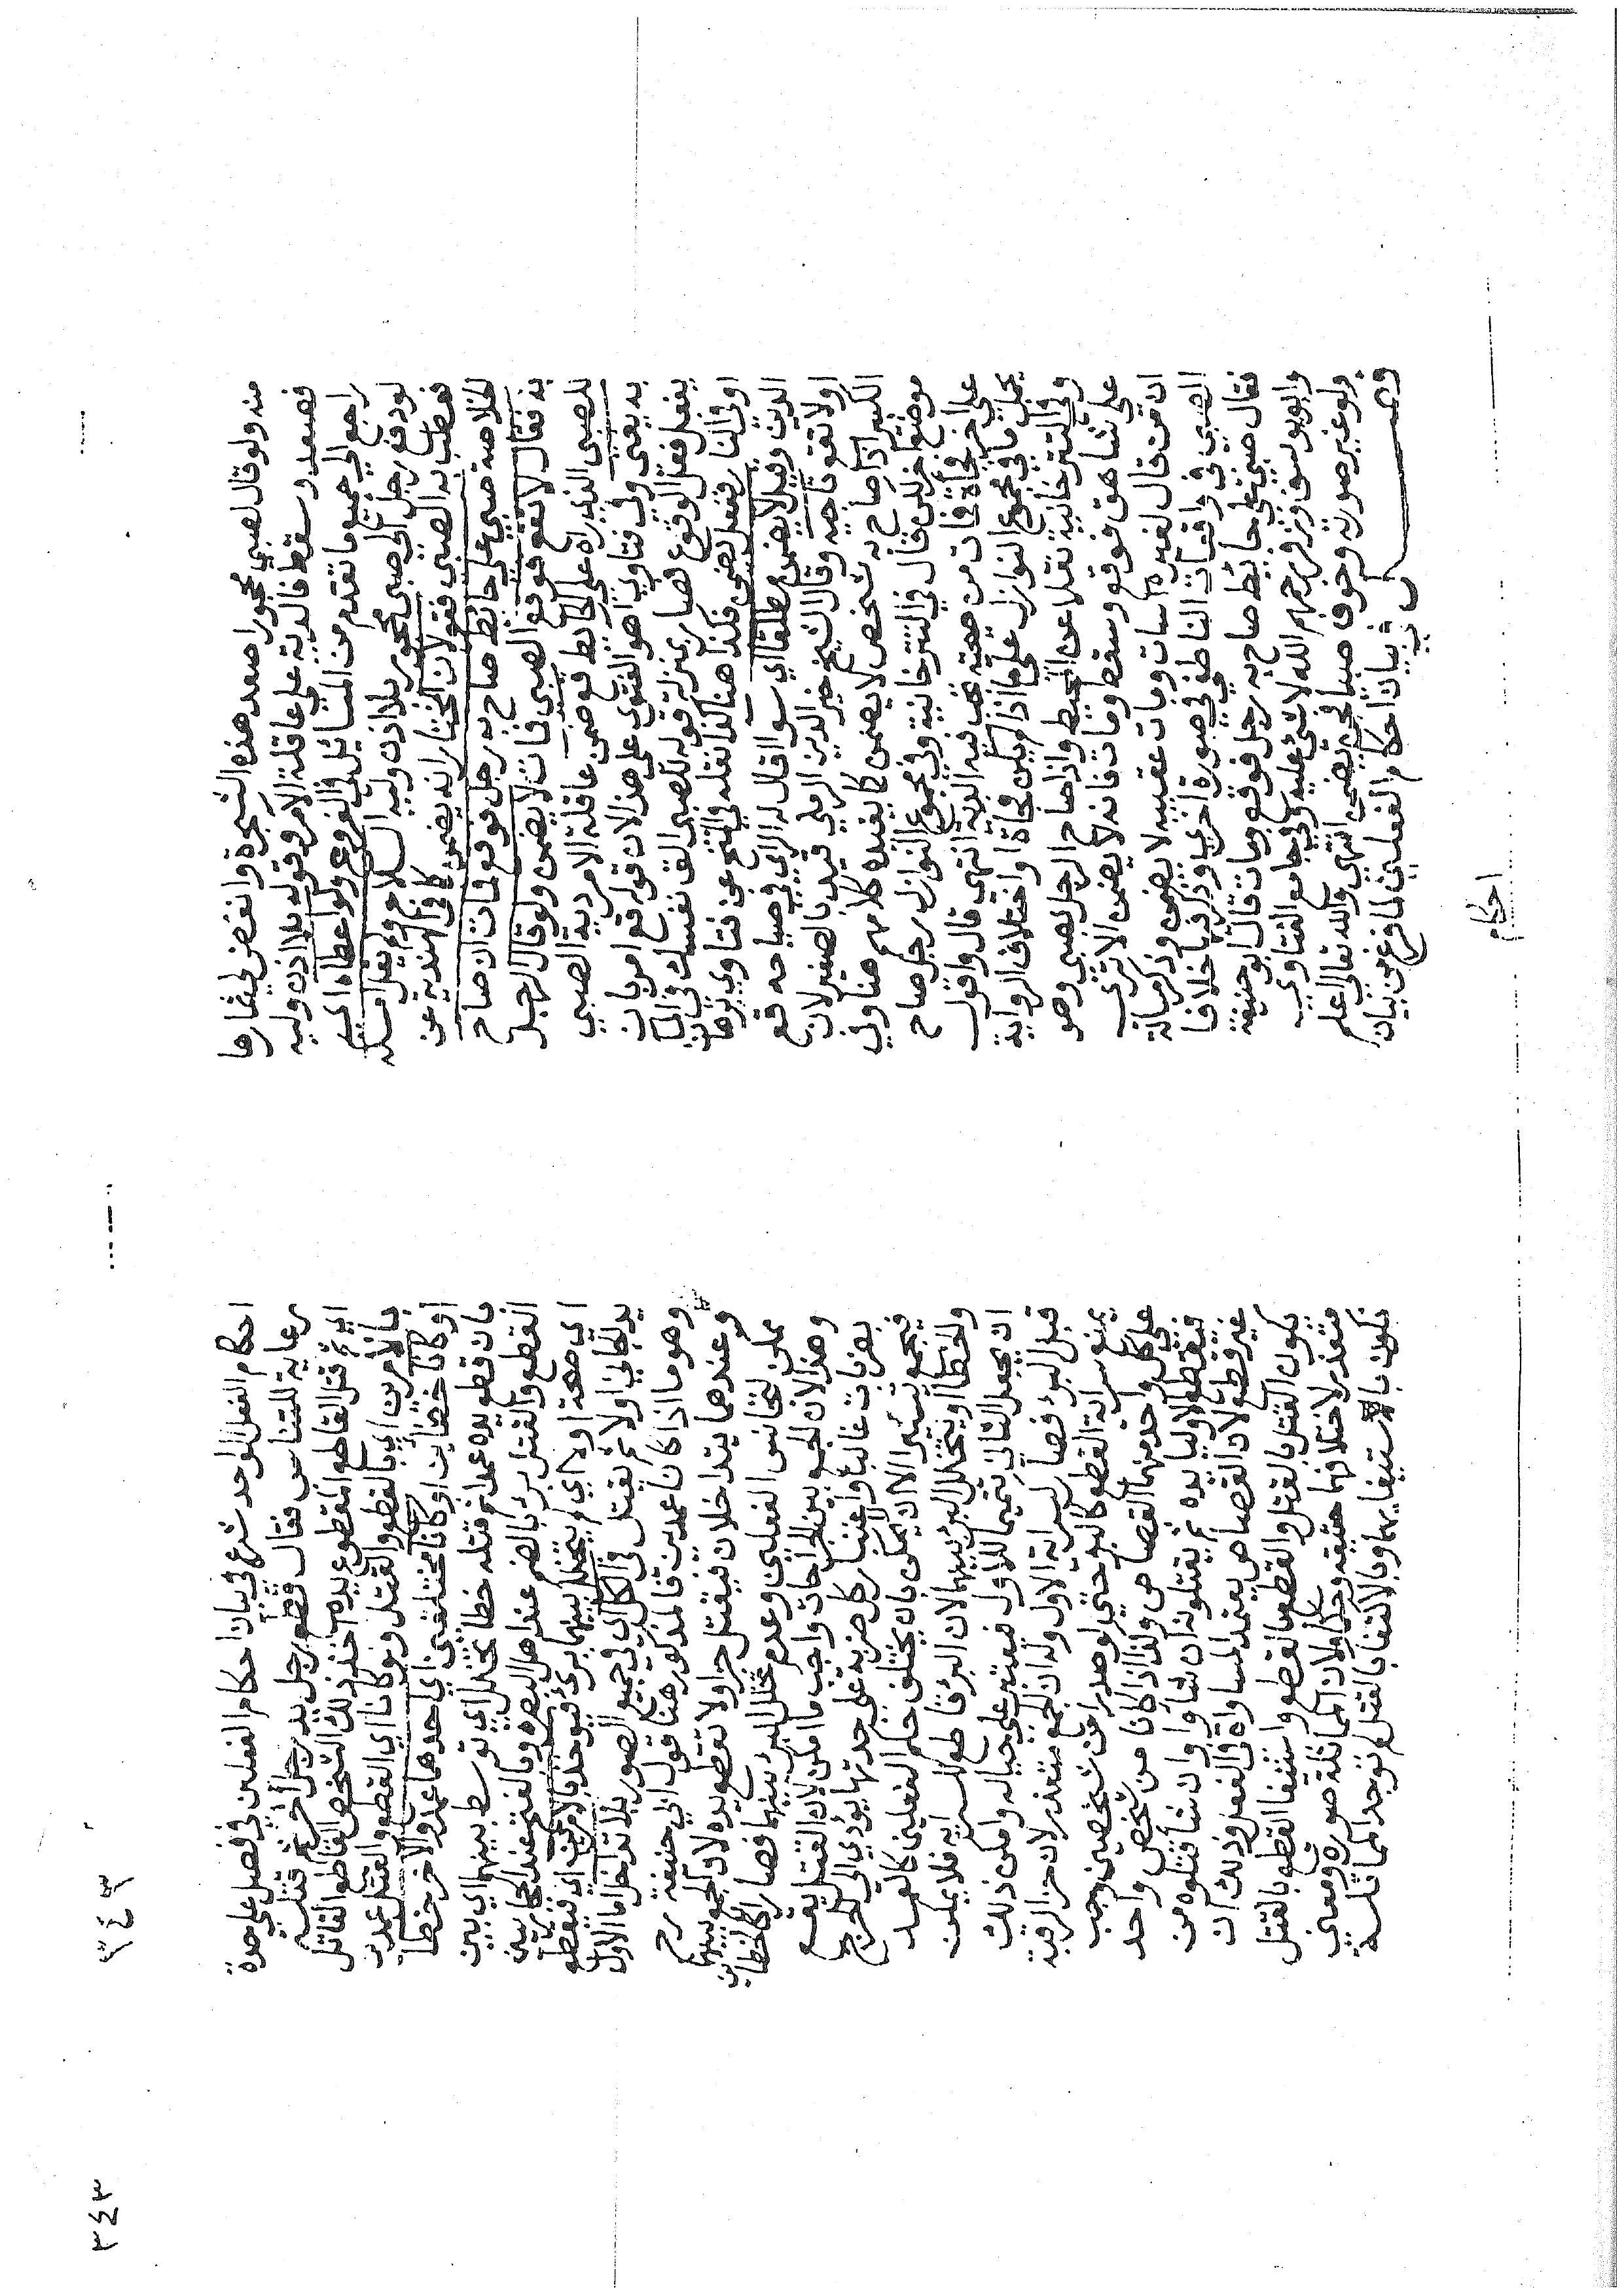 منه ولو قال لصبي محجور اصعد هذه الشجرة وانفض لي ثمارها
فصعد وسقط فالدية علي عاقلة الامر وقوله بلا اذن وليه
راجع الي جميع ما تقدم من المسائل في الفروع ولو اعطاه اي
لو دفع رجل الي صبي محجور بلا اذن وليه السلاح ولم يقل امسكه
فعطب به الصبي فقولان المختار انه يضمن كما في الهندية عن
الخلاصة صبي علي حايط صاح به رجل فوقع فمات ان صاح
به فقال لا تقع فوقع الصبي فمات لا يضمن ولو قال الرجل
للصبي الذي راه علي الحايط قع فوقع ضمن عاقلة الامر دية الصبي
به يفتي وفي فتاوي اهو الفتوي علي هذا لان قوله قع امر بان
يفعل فعل الوقوع فصار بمنزلة قوله للصبي الق نفسك في الماء
او في النار ففعل يضمن فكذا هنا كذا نقله في المنح عن فتاوي برهان
الدين وقيل لا يضمن مطلقا اي سوا قال له الرائي في صياحه قع
او لا تقع تاجيه وقال الشيخ خير الدين الرملي قيد بالصغير لان
الكبير اذا صاح به شخص لا يضمن كما يفيده كلامهم هنا وفي
موضع اخر لكن قال في التترخانية وفي مجموع النوازل رجل صاح
علي اخر فجاة فمات من صيحته تجب فيه الدية انتهي قال واقول
يحمل ما في مجموع النوازل علي ما اذا لم يكن فجاة او اختلاف الرواية
وفي التترخانية نقلا عن المحيط واذا صاح الرجل بصبي وهو
علي شاهق فوقع وسقط ومات فانه لا يضمن الا تري
ان من قال لغيره مت ومات عقيبه لا يضمن وذكر مسالة
الصبي في واقعات الناطفي في صورة اخري وذكر بها خلافا
فقال صبي علي حايط صاح به رجل فوقع ومات قال ابو حنيفة
وابو يوسف وزفر رحمهم الله لا شئ عليه وفي جامع الفتاوي
ولو غير صورته وخوف صبيا فجن يضمن انتهي والله تعالي اعلم
فصل في بيان احكام الفعلين لما فرغ من بيان
احكام
احكام الفعل الواحد شرع في بيان احكام الفعلين في فصل علي حدة
رعاية للتناسب فقال قطع رجل يد رجل اخر ثم قتله
اي ثم قتل القاطع المقطوع يده اخذ ذلك الشخص القاطع القاتل
بالامرين اي بالقطع والقتل ولو كانا اي القطع والقتل عمدين
او كانا خطأين او كانا مختلفين اي احدهما عمد والاخر خطا
بان قطع يده عمدا ثم قتله خطا تخلل اي توسط بينهما اي بين
القطع والقتل برء بالضم عند اهل البصره وبالفتح عند الحجازيين
اي صحة اولا اي لم يتخلل بينهما برئ فيوخذ بالامرين اي فيقطع
يد الجاني اولا ثم يقتل في الكل اي في جميع الصور بلا تداخل اما الاول
وهو ما اذا كانا عمدين فالمذكور هنا قول ابي حنيفة رح
وعندهما يتداخلان فيقتل جزا ولا تقطع يده لان الجمع بينهما
ممكن لتجانس الفعلين وعدم تخلل البرئ بينهما فصار كالخطاين
وهذا لان الجمع بين الجراحات واجب ما امكن لان القتل يقع
بضربات غالبا واعتبار كل ضربة علي حدتها يؤدي الي الحرج
فيجمع تيسيرا الا ان لا يمكن بان يختلف حكم الفعلين كالعمد
والخطا او يتخلل البرئ بينهما لان البرئ قاطع للسراية فلا يمكن
ان يجعل الثاني تتميما للاول فيعتبر علي حياله وامكن ذلك
قبل البرئ فصار كسراية الاول وله ان الجمع متعذر لان حز الرقبة
يمنع سراية القطع كالبرئ حتي لو صدرا من شخصين وجب
علي كل واحد منهما القصاص ولذا اذا كانا من شخص واحد
فيقطع الاوليا يده ثم يقتلونه ان شاوا وان شاوا قتلوه من
غير قطع لان القصاص يعتمد المساواة في الفعل وذلك ان
يكون القتل بالقتل والقطع بالقطع واستيفا القطع بالقتل
متعذر لاختلافهما حقيقة وحكما ولان المماثلة صورة ومعني
تكون باستيفايهما وبالاكتفا بالقتل لم توجد المماثلة
٣٤٣
٣٤٣